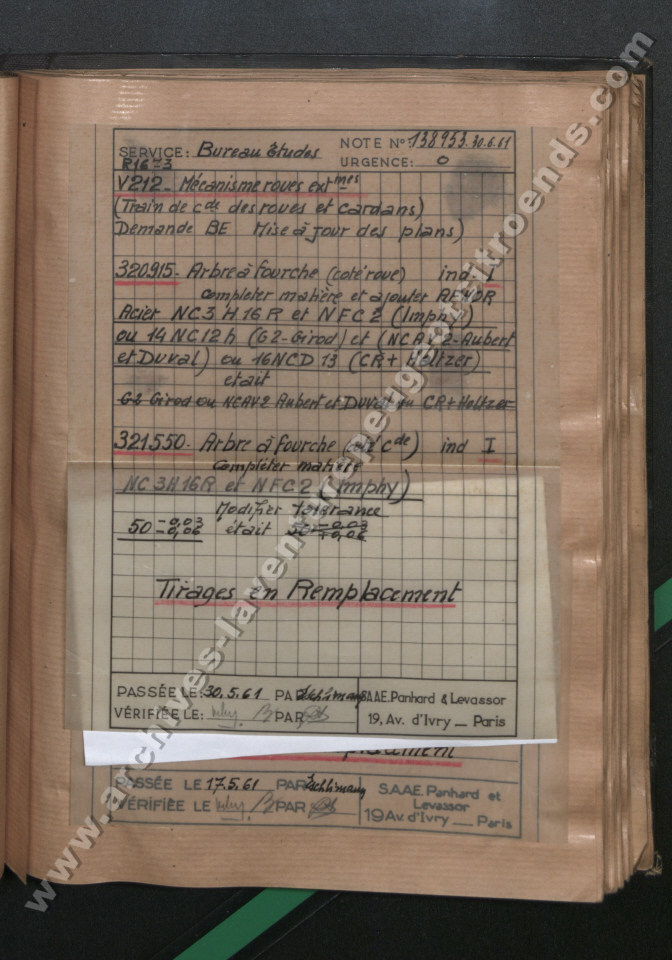 SERVICE: Bureau Études
NOTE N° 138953.30.6.61
URGENCE: 0
R16-3
V212 - Mécanisme roues ext mes
(Train de c de des roues et cardans)
Demande BE Mise à jour des plans)
320.915 - Arbre à fourche (coté roue) ind - I
completer matière et ajouter
Acier NC3 H16R et NFC2 (Imphy)
ou 14NC12h (G2-Girod) et (NCAV2-Aubert
et Duval) ou 16NCD 13 (CR+ Holtzer)
etait
G2 Girod ou NCAV2 Aubert et Duval ou CR+Holtzer
321.550 - Arbre à fourche (coté c de) ind I
completer matière
NC 3H16R et NFC2 (Imphy)
Modifier tolérance
50 -0,03 -0,06 était 50 -0,03 +0,06
Tirages en Remplacement
PASSÉE LE: 30.5.61 PAR
VÉRIFIÉE LE: PAR
S.A.A.E. Panhard & Levassor
19, Av. d'Ivry — Paris
Remplacement
PASSÉE LE 17.5.61 PAR
VÉRIFIÉE LE PAR
S.A.A.E. Panhard et
Levassor
19 Av. d'Ivry — Paris
www.archives-laventurepeugeotcitroends.com